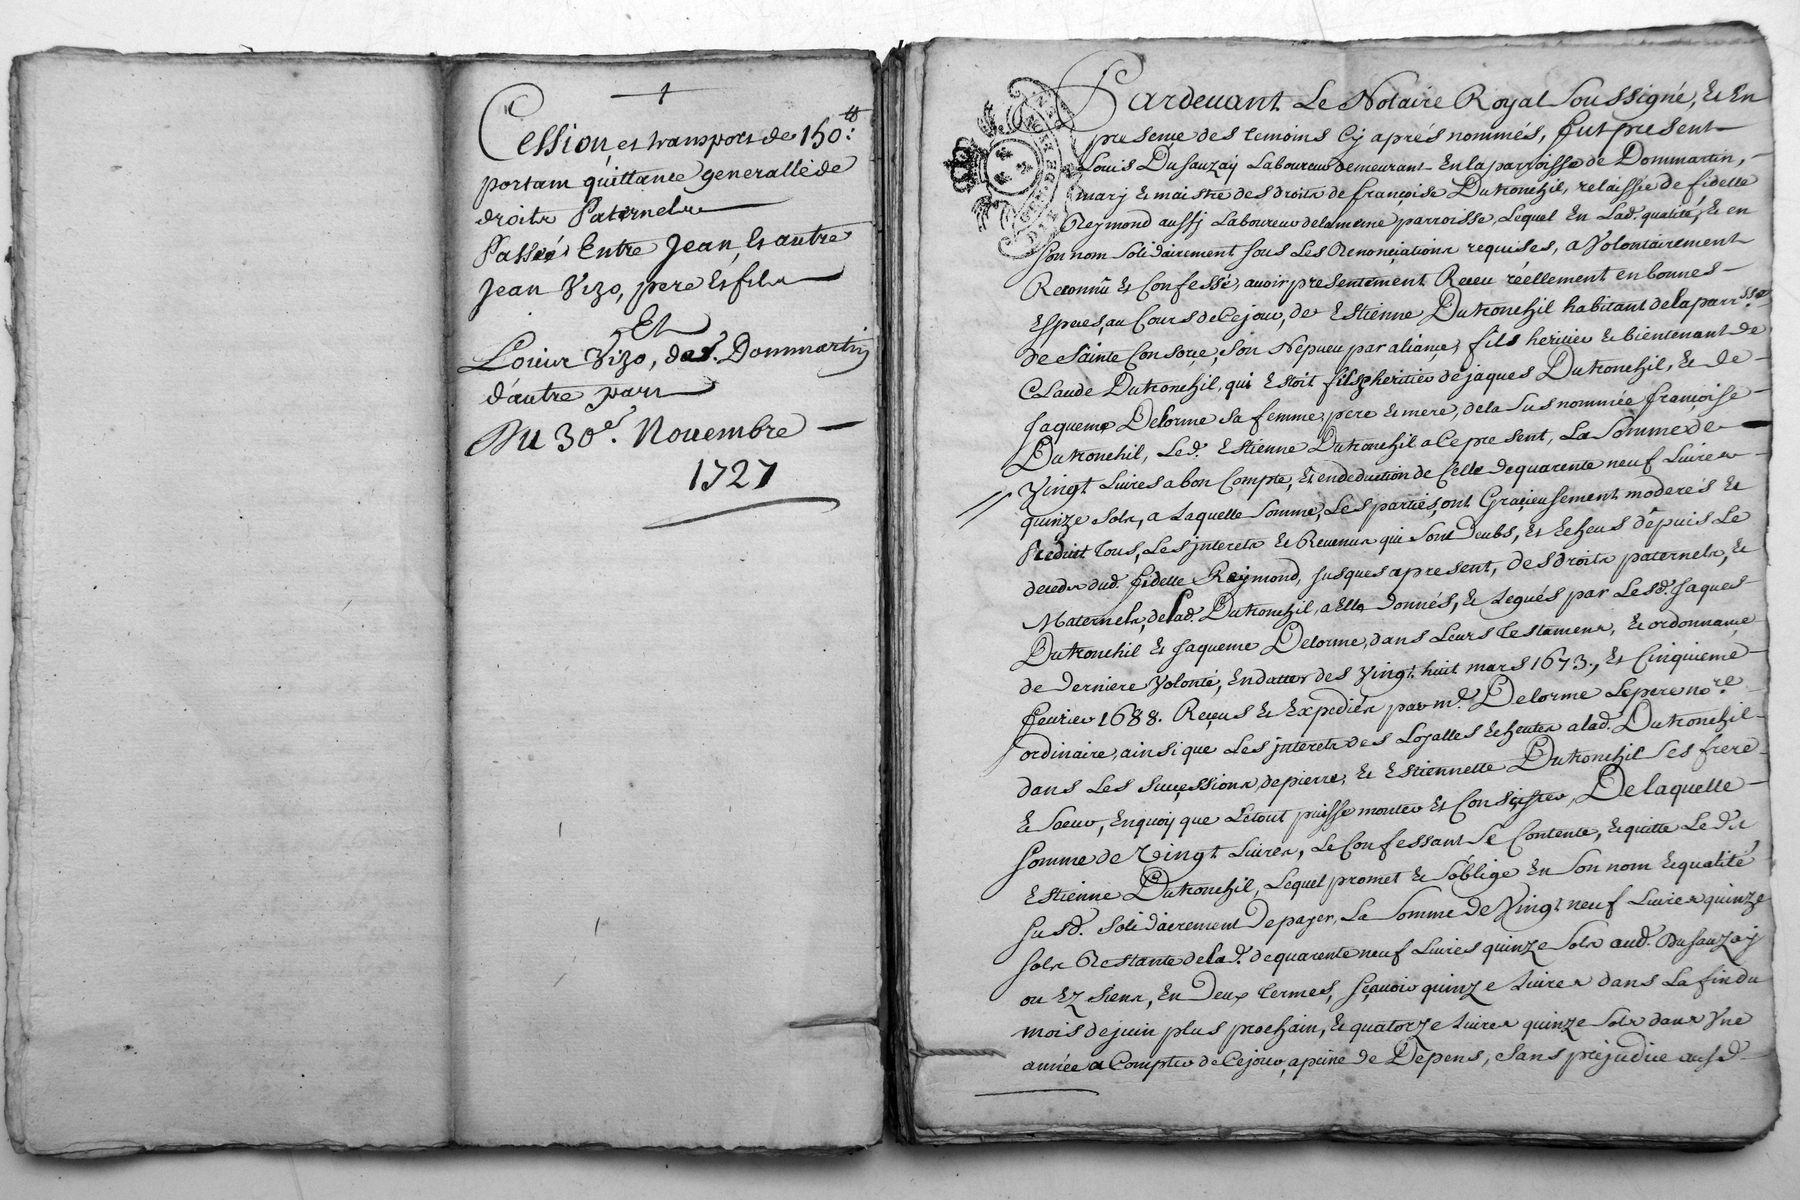 Cession, et transport de 150:#
portant quittance generalle de
droits Paternels
Passée Entre Jean, et autre
Jean Vizo, pere et fils
Et
Loüis Vizo, de Dommartin
d'autre part
Du 30e. Novembre
1727
Pardevant Le Notaire Royal Soussigné, Et En
presençe des temoins Cy aprés nommés, fut present
Loüis Dusauzaÿ Laboureur demeurant En la parroisse de Dommartin,
mary et maistre des droits de françoise Dutronchil, relaissée de fidelle
Reymond aussy Laboureur de la meme parroisse, Lequel En Lad. qualité, et en
son nom solidairement sous Les Renonçiations requises, a Volontairement
Reconnû et Confessé, avoir presentement Receu réellement en bonnes
Espèces, au Cours de Cejour, de Estienne Dutronchil habitant de la parrsse.
de Sainte Consorçe, son Népueu par aliançe, fils heritier et bientenant de
Claude Dutronchil, qui Estoit fils et heritier de jaques Dutronchil, et de
Jaqueme Delorme sa femme, pere et mere, de la susnommée françoise
Dutronchil, Led. Estienne Dutronchil a Ce present, La Somme de
Vingt Livres a bon Compte, et en deduction de Celle de quarente neuf Livres
quinze sols, a Laquelle Somme, Les parties, ont Graçieusement moderés et
Reduit tous, Les jnterets et Revenus qui sont Deubs, et Echeus dépuis Le
deceds dud. fidelle Reÿmond, jusques apresent, des droits paternels, et
Maternels, de Lad. Dutronchil, a Elle donnés, et Legués par Lesd. Jaques
Dutronchil et Jaqueme Delorme, dans Leurs testamens, et ordonnançe
de Derniere Volonté, En datter des Vingt huit mars 1673., et Cinquieme
fevrier 1688. Reçeus et Expediés par me. Delorme Lepere nore.
ordinaire, ainsi que Les jnterets des Loyalles Echeutes a lad. Dutronchil
dans Les Suççessions de pierre, et Estiennette Dutronchil Ses frere
et Soeur, En quoÿ que Letout puisse monter et Consister, De laquelle
Somme de Vingt Livres, Le Confessant Se Contente, et quitte Ledit
Estienne Dutronchil, Lequel promet et S'oblige En Son nom et qualité
susd. solidairement De payer, La Somme de Vingt neuf Livres quinze
sols Restante de La d. de quarente neuf Livres quinze Sols aud. Dusauzaÿ
ou Ez siens, En Deux termes, sçavoir quinze Livres dans La fin du
mois de juin plus prochain, et quatorze Livres quinze sols dans Vne
année a Compter de Cejour, a peine de Depens, sans prejudice ausd